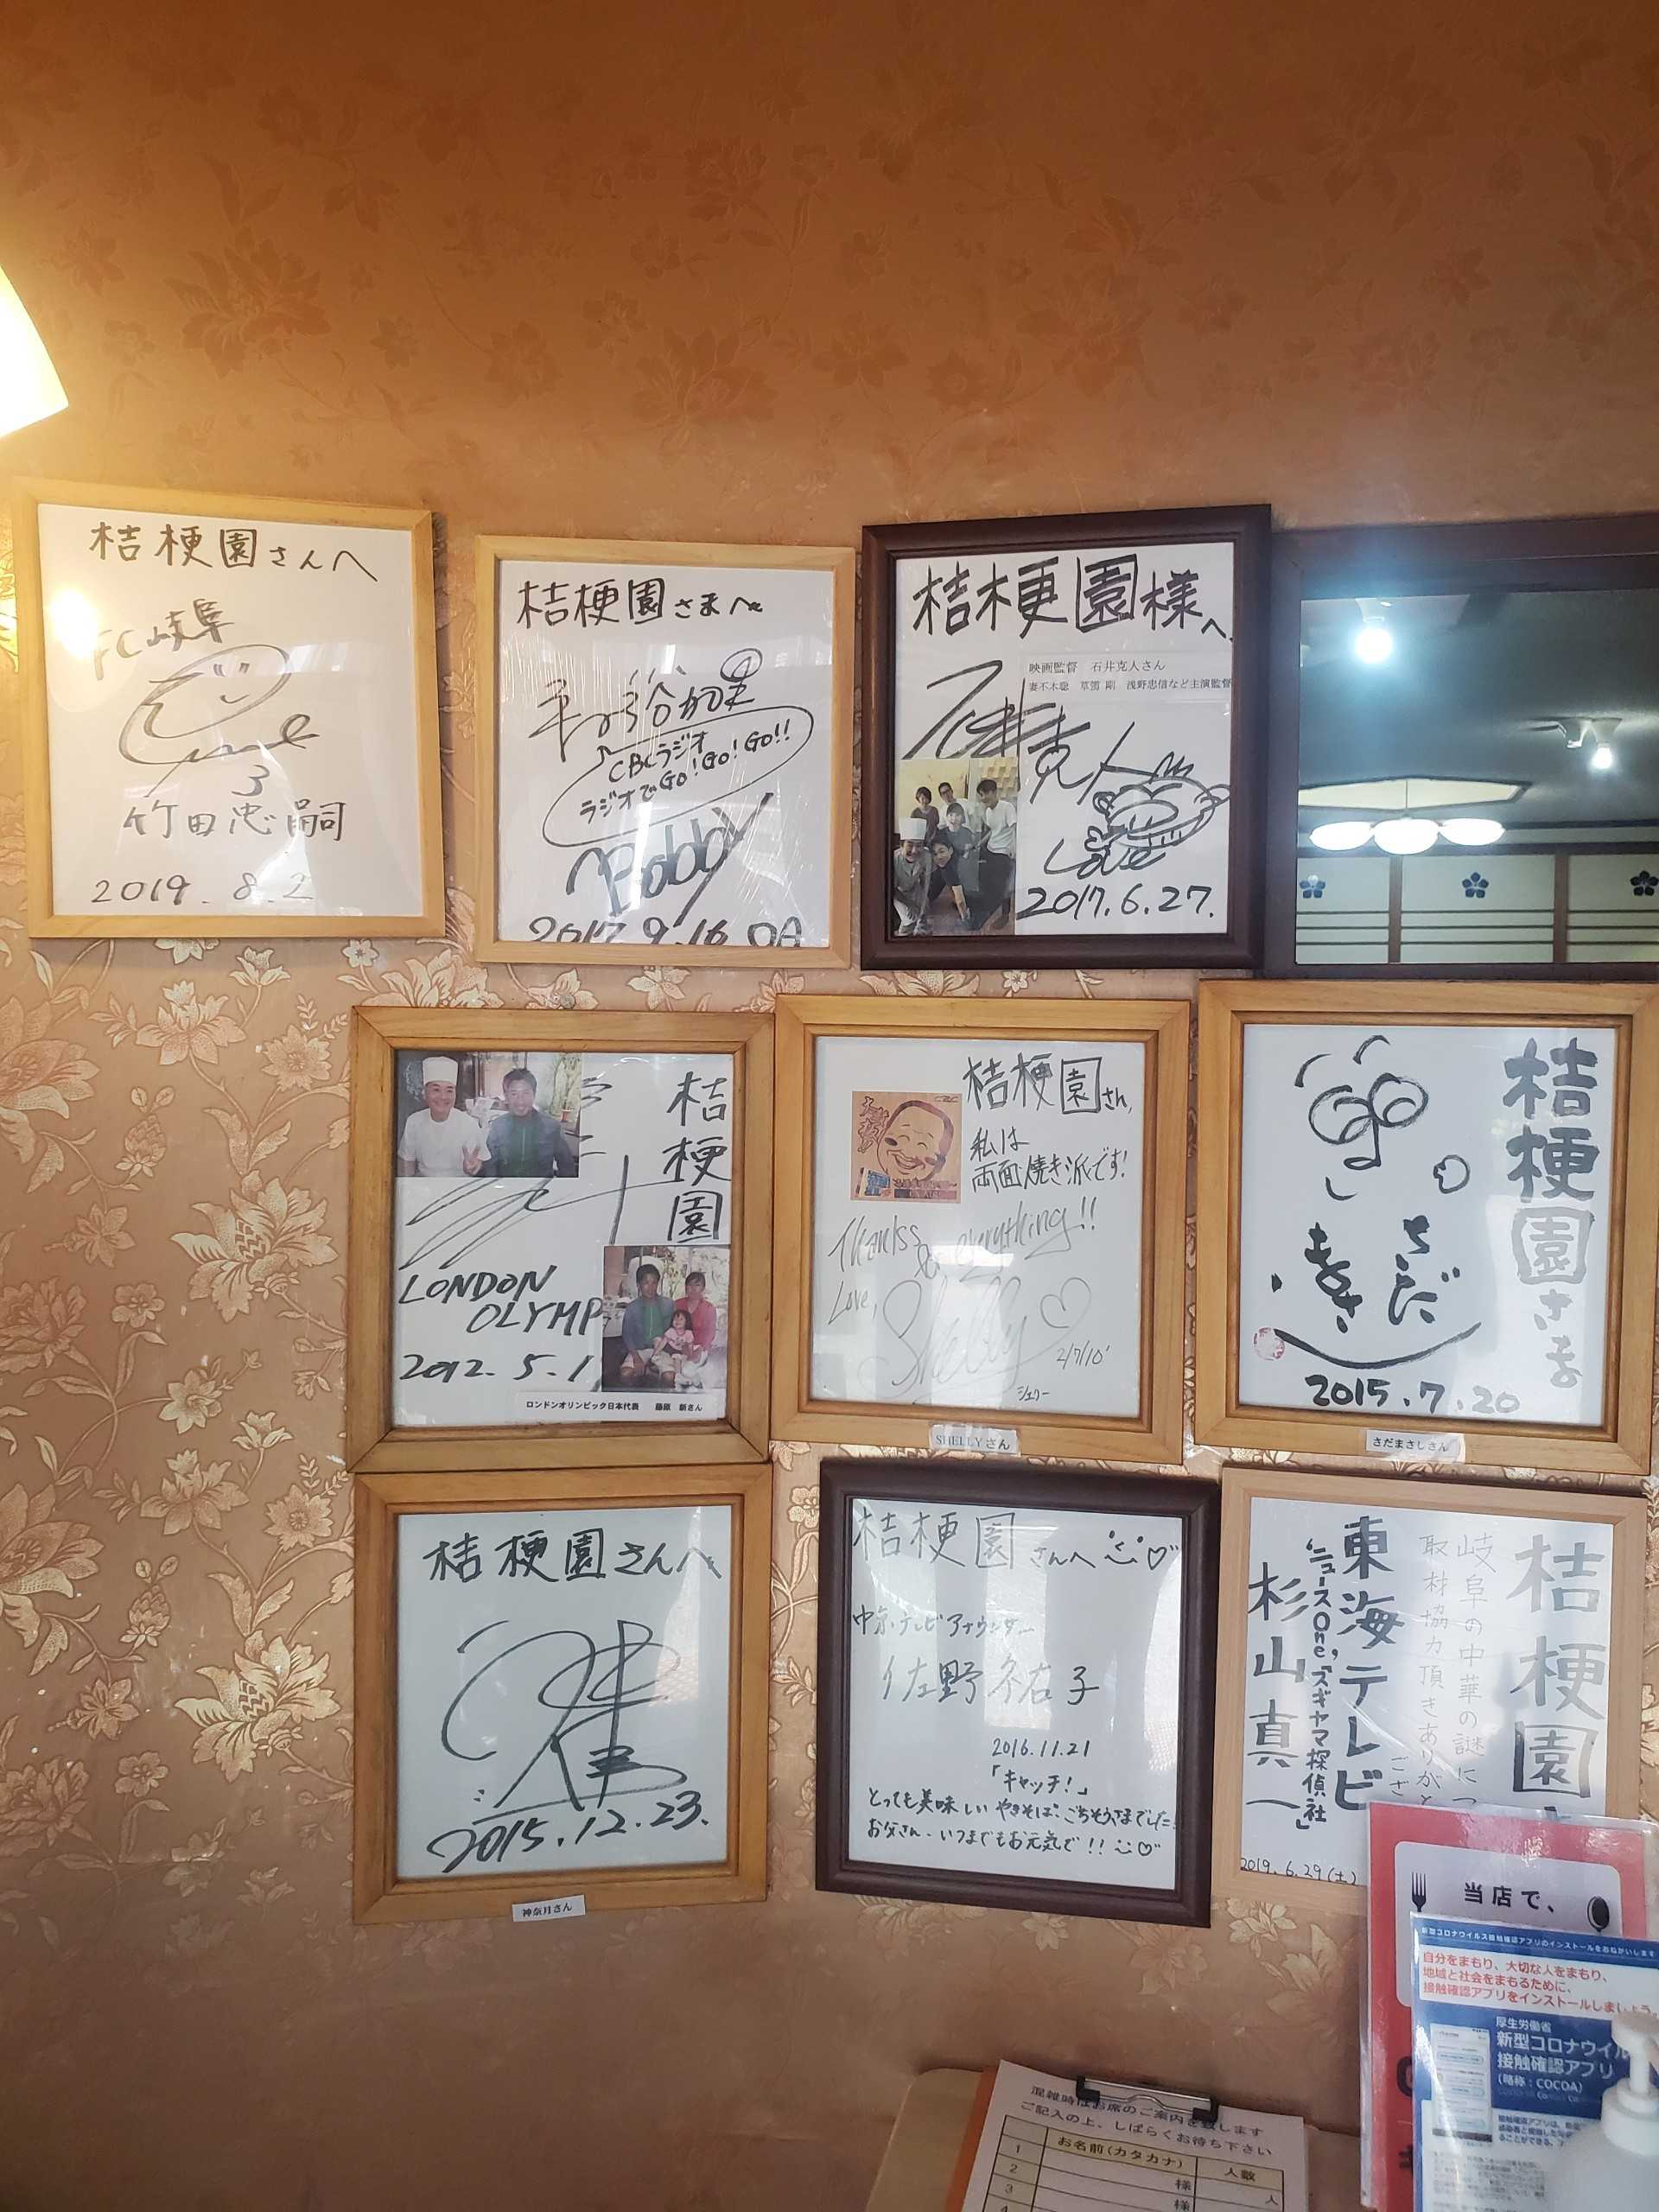 桔梗園さんへ
FC岐阜
3
竹田忠嗣
2019.8.2
桔梗園さまへ
平野裕加里
CBCラジオ
ラジオでGO!GO!GO!!
Bobby
2017.9.16 OA
桔梗園様へ
映画監督 石井克人さん
妻夫木聡 草彅 剛 浅野忠信など主演監督
石井克人
Love
2017.6.27.
桔梗園
LONDON
OLYMP
2012.5.1
ロンドンオリンピック日本代表 藤原 新さん
桔梗園さん、
私は
両面焼き派です!
Thanks 4 everything!!
Love,
Shelly
シェリー
2/7/10'
SHELLYさん
桔梗園さま
さだ
まさし
2015.7.20
さだまさしさん
桔梗園さんへ
2015.12.23.
神奈月さん
桔梗園さんへ
中京テレビアナウンサー
佐野祐子
2016.11.21
「キャッチ!」
とっても美味しいやきそば、ごちそうさまでした
お父さん、いつまでもお元気で!!
桔梗園
岐阜の中華の謎につ
取材協力頂きありがと
ござ
東海テレビ
"ニュースOne,"「スギヤマ探偵社」
杉山真一
2019.6.29(土)
当店で、
新型コロナウイルス接触確認アプリのインストールをおねがいします
自分をまもり、大切な人をまもり、
地域と社会をまもるために、
接触確認アプリをインストールしましょう。
厚生労働省
新型コロナウイル
接触確認アプリ
(略称:COCOA)
混雑時はお席のご案内を致します
ご記入の上、しばらくお待ち下さい
お名前(カタカナ) 人数
1 様 人
2 様
3
4